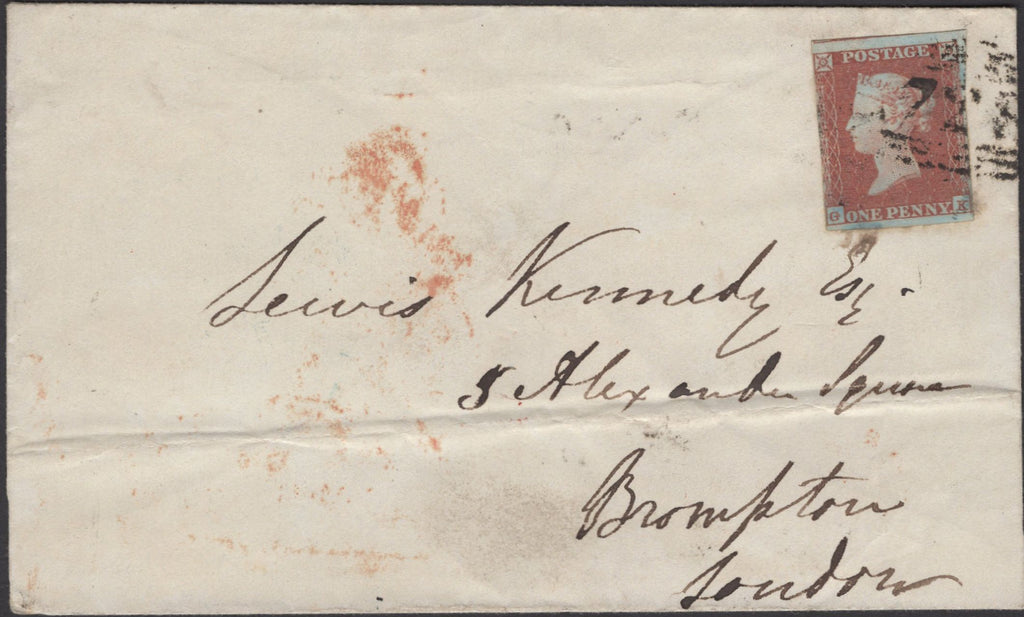 POSTAGE
G ONE PENNY K
Lewis Kennedy Esq.
5 Alexander Square
Brompton
London